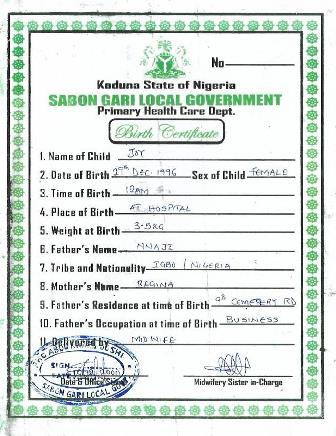 No
Kaduna State of Nigeria
SABON GARI LOCAL GOVERNMENT
Primary Health Care Dept.
Birth Certificate
1. Name of Child JOY
2. Date of Birth 29th DEC 1996 Sex of Child FEMALE
3. Time of Birth 12AM
4. Place of Birth AT HOSPITAL
5. Weight at Birth 3.5KG
6. Father's Name NNAJI
7. Tribe and Nationality IGBO / NIGERIA
8. Mother's Name RAGINA
9. Father's Residence at time of Birth CEMETERY RD
10. Father's Occupation at time of Birth BUSINESS
11. Delivered by MIDWIFE
SIGN
Date & Office Midwifery Sister in-Charge
SABON GARI LOCAL GOVT